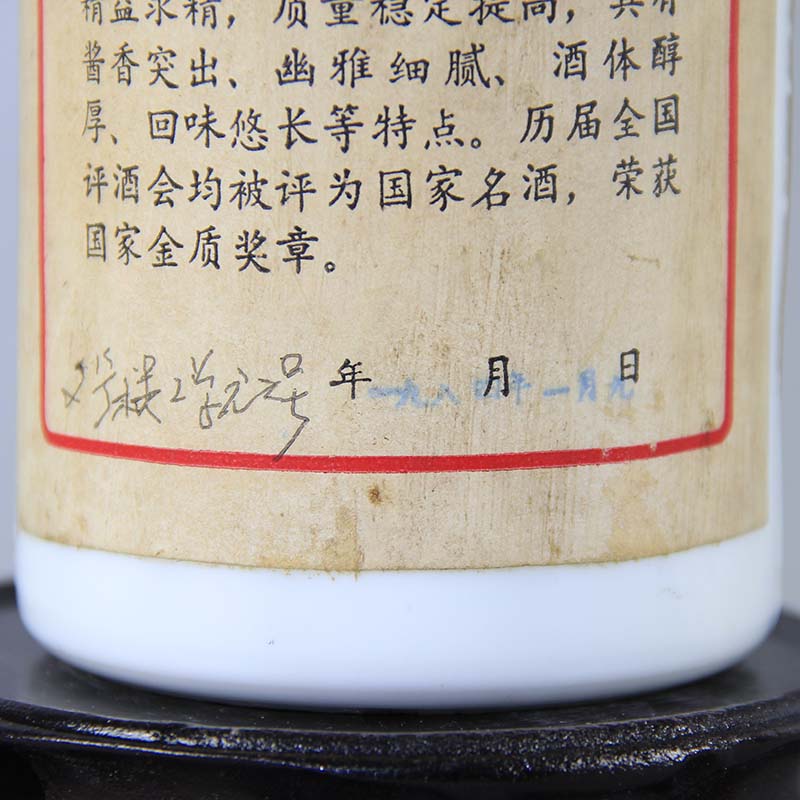 精益求精，质量稳定提高，具有
酱香突出、幽雅细腻、酒体醇
厚、回味悠长等特点。历届全国
评酒会均被评为国家名酒，荣获
国家金质奖章。
楼2单元2号
年 月 日
一九八四年一月九